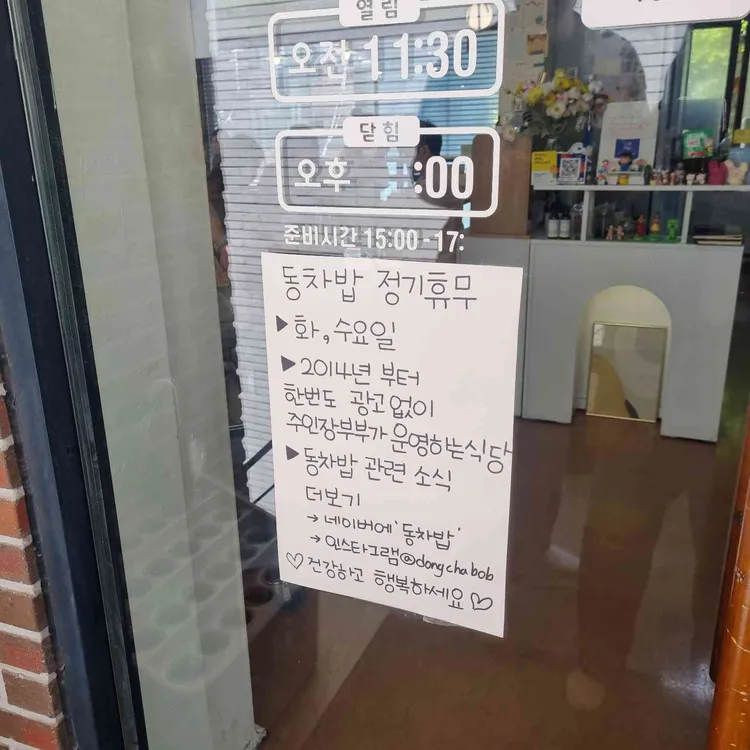 열림
오전 11:30
닫힘
오후 :00
준비시간 15:00-17:
동차밥 정기휴무
▶화, 수요일
▶2014년 부터
한번도 광고없이
주인장부부가 운영하는식당
▶동차밥 관련 소식
더보기
→ 네이버에 '동차밥'
→ 인스타그램@dongchabob
♡건강하고 행복하세요♡